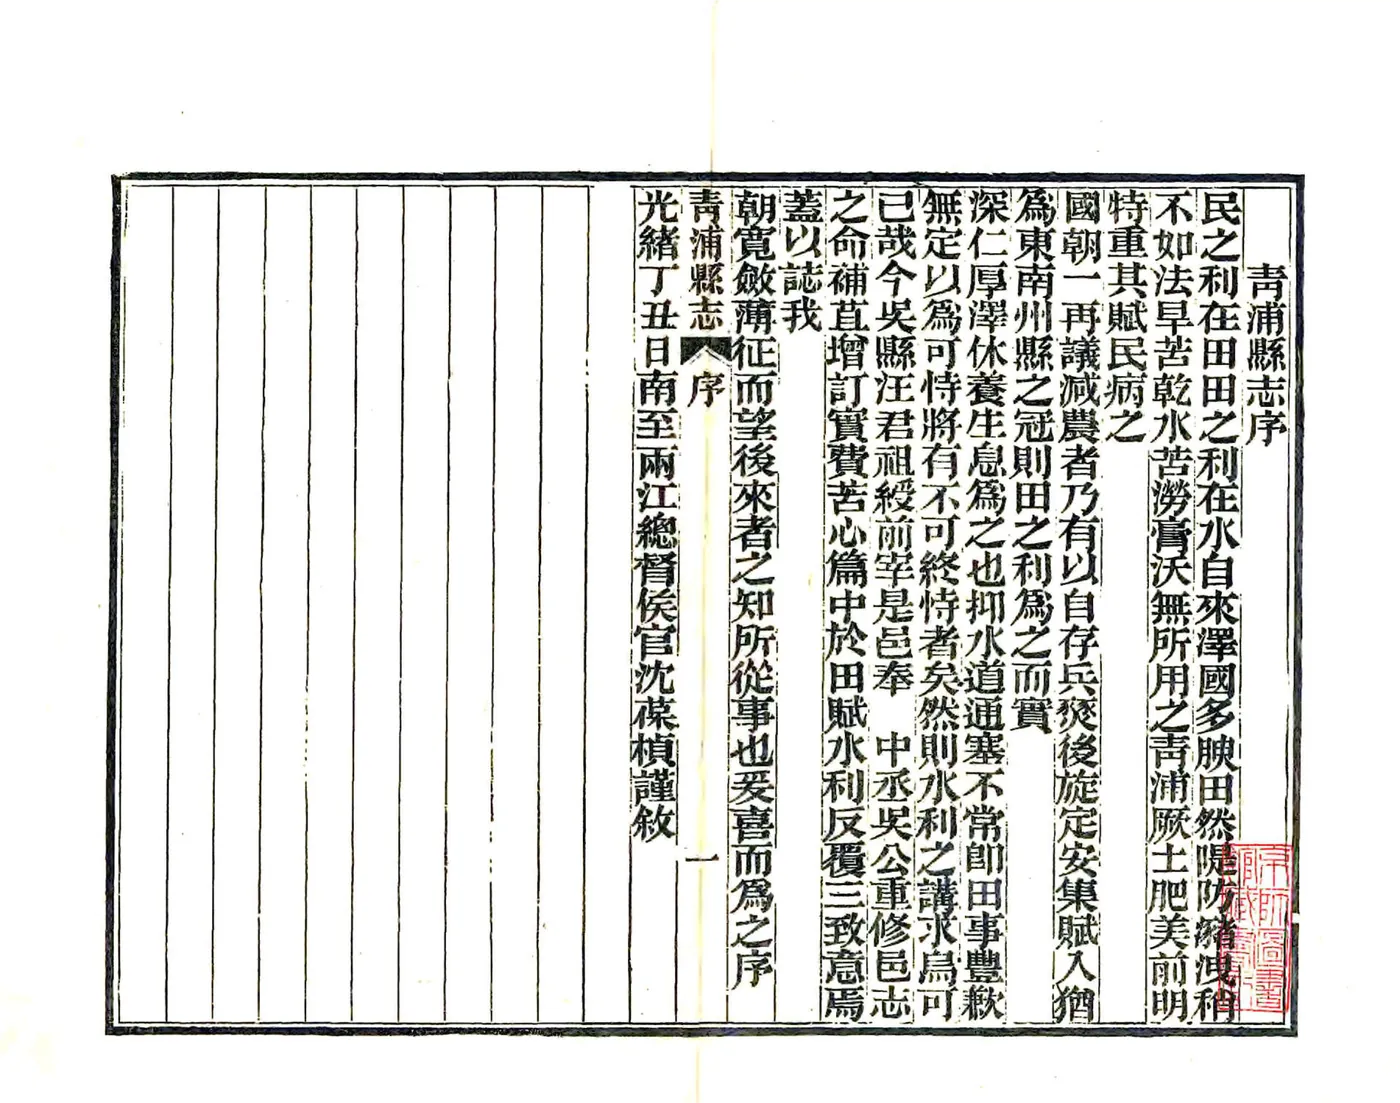 青浦縣志序
民之利在田田之利在水自來澤國多腴田然隄防瀦洩稍
不如法旱苦乾水苦澇膏沃無所用之青浦厥土肥美前明
特重其賦民病之
國朝一再議減農者乃有以自存兵燹後旋定安集賦入猶
爲東南州縣之冠則田之利爲之而實
深仁厚澤休養生息爲之也抑水道通塞不常卽田事豐歉
無定以爲可恃將有不可終恃者矣然則水利之講求烏可
已哉今吳縣汪君祖綬前宰是邑奉　中丞吳公重修邑志
之命補苴增訂實費苦心篇中於田賦水利反覆三致意焉
蓋以誌我
朝寬斂薄征而望後來者之知所從事也爰喜而爲之序
青浦縣志　序　一
光緒丁丑日南至兩江總督侯官沈葆楨謹敘